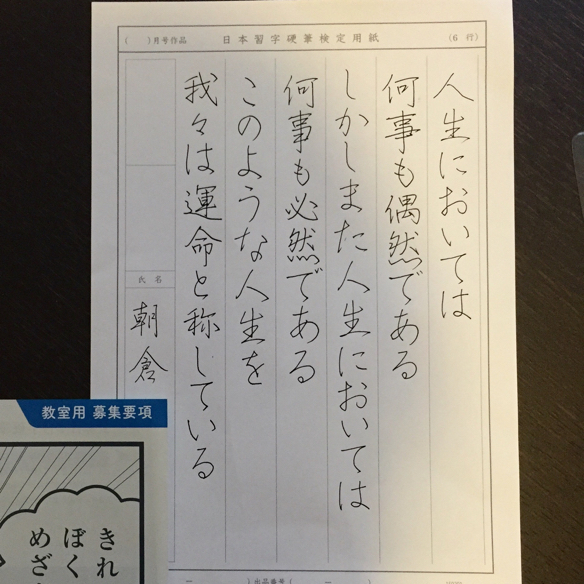 (　)月号作品　日本習字硬筆検定用紙　(6 行)
人生においては
何事も偶然である
しかしまた人生においては
何事も必然である
このような人生を
我々は運命と称している
氏名
朝倉
教室用 募集要項
きれ
ぼく
めざ
)出品番号(